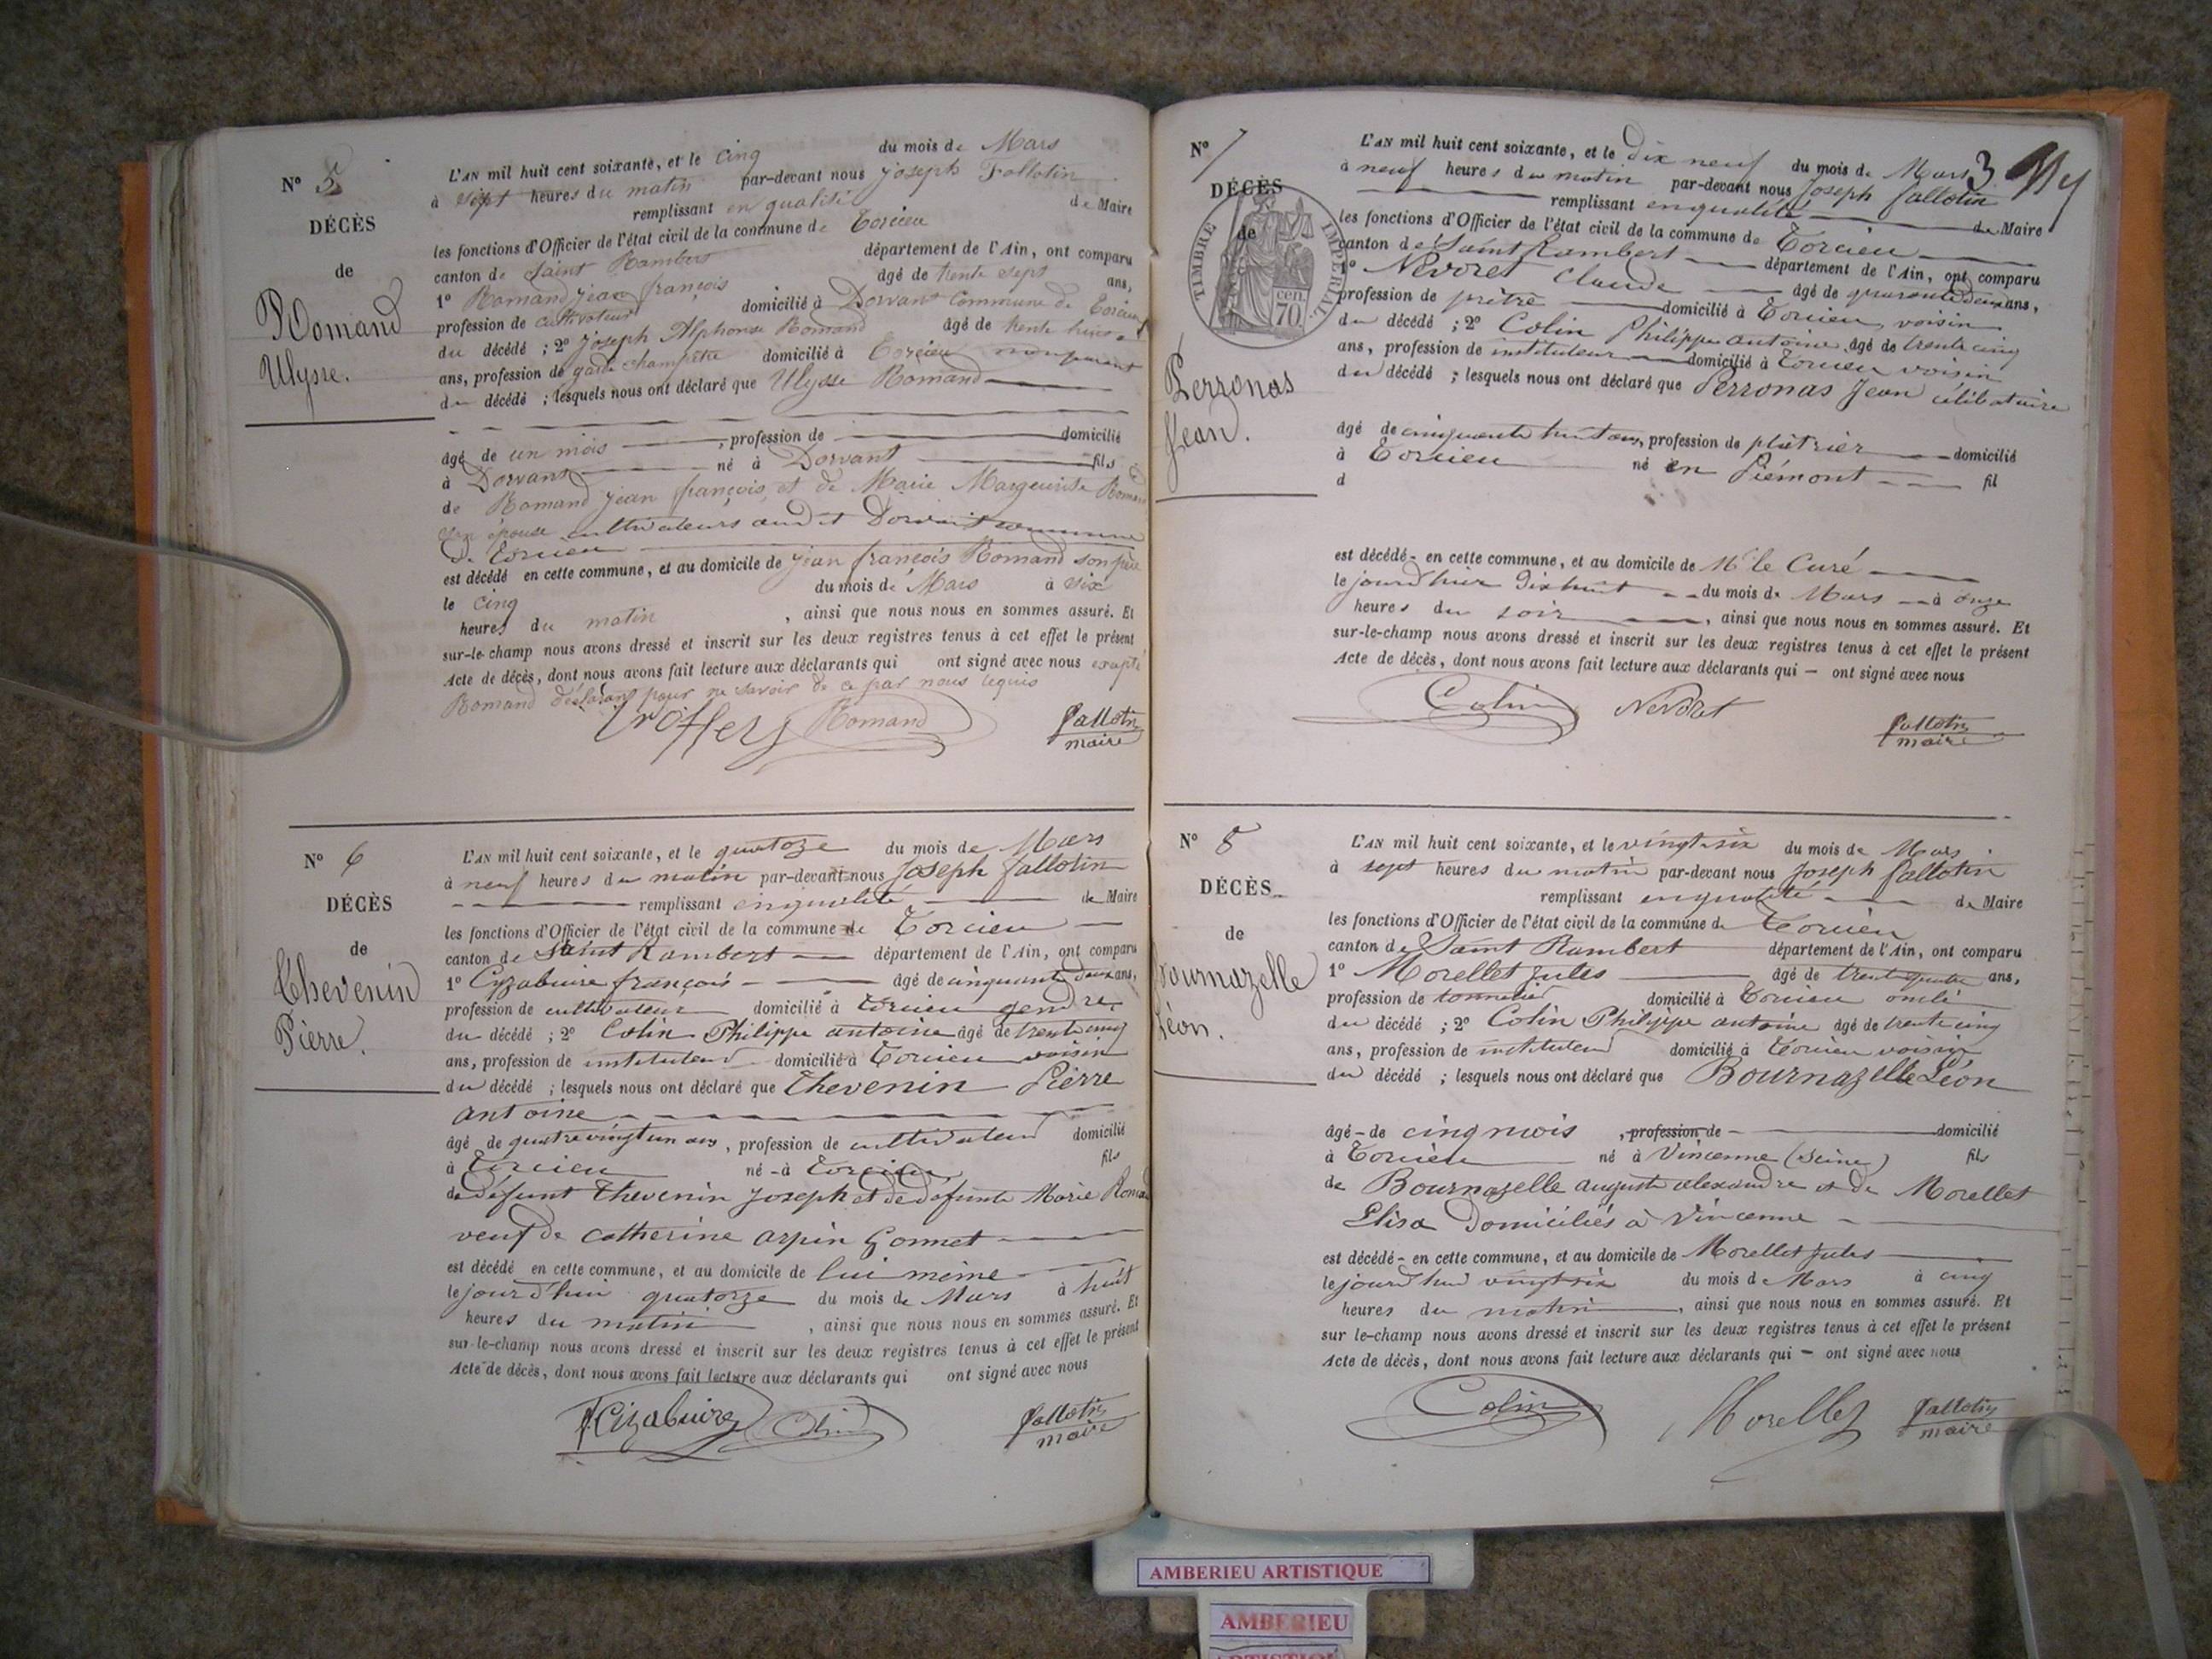 N° 5
DÉCÈS
de
Romand
Ulysse.
L'AN mil huit cent soixante, et le cinq du mois de Mars
à sept heures du matin par-devant nous joseph Fallotin
remplissant en qualité de Maire
les fonctions d'Officier de l'état civil de la commune de Torcieu
canton de Saint Rambert département de l'Ain, ont comparu
1° Romand jean françois âgé de trente sept ans,
profession de cultivateur domicilié à Dorvant Commune de Torcieu
du décédé ; 2° joseph Alphonse Romand âgé de trente huit
ans, profession de garde champêtre domicilié à Torcieu
du décédé ; lesquels nous ont déclaré que Ulysse Romand
âgé de un mois , profession de domicilié
à Dorvant né à Dorvant fils
de Romand jean françois, et de Marie Marguerite Romand
son épouse cultivateurs audit Dorvant commune
de Torcieu
est décédé en cette commune, et au domicile de jean françois Romand son père
le cinq du mois de Mars à six
heures du matin , ainsi que nous nous en sommes assuré. Et
sur-le-champ nous avons dressé et inscrit sur les deux registres tenus à cet effet le présent
Acte de décès, dont nous avons fait lecture aux déclarants qui ont signé avec nous excepté
Romand déclarant pour ne savoir de ce par nous requis
Romand fallotin
maire
N° 6
DÉCÈS
de
Thevenin
Pierre.
L'AN mil huit cent soixante, et le quatorze du mois de Mars
à neuf heures du matin par-devant nous Joseph fallotin
remplissant enqualité de Maire
les fonctions d'Officier de l'état civil de la commune de Torcieu
canton de Saint Rambert département de l'Ain, ont comparu
1° Cyzabuire françois âgé de cinquante deux ans,
profession de cultivateur domicilié à Torcieu gendre
du décédé ; 2° Colin Philippe antoine âgé de trente cinq
ans, profession de instituteur domicilié à Torcieu voisin
du décédé ; lesquels nous ont déclaré que Thevenin Pierre
antoine
âgé de quatre vingt un ans , profession de cultivateur domicilié
à Torcieu né à Torcieu fils
de défunt Thevenin Joseph et de défunte Marie Romand
veuf de catherine arpin Gonnet
est décédé en cette commune, et au domicile de lui même
le jourd'hui quatorze du mois de Mars à huit
heures du matin , ainsi que nous nous en sommes assuré. Et
sur-le-champ nous avons dressé et inscrit sur les deux registres tenus à cet effet le présent
Acte de décès, dont nous avons fait lecture aux déclarants qui ont signé avec nous
f.Cizabuire Colin fallotin
maire
N° 7
DÉCÈS
de
TIMBRE IMPERIAL
70 cen.
Perronas
Jean.
3
L'AN mil huit cent soixante, et le dix neuf du mois de Mars
à neuf heures du matin par-devant nous Joseph fallotin
remplissant enqualité de Maire
les fonctions d'Officier de l'état civil de la commune de Torcieu
canton de Saint Rambert département de l'Ain, ont comparu
1° Nevoret Claude âgé de quarante deux ans,
profession de prêtre domicilié à Torcieu voisin
du décédé ; 2° Colin Philippe antoine âgé de trente cinq
ans, profession de instituteur domicilié à Torcieu voisin
du décédé ; lesquels nous ont déclaré que Perronas Jean célibataire
âgé de cinquante huit ans, profession de plâtrier domicilié
à Torcieu né en Piémont fil
d
est décédé en cette commune, et au domicile de Mr le Curé
le jourd'hier dixhuit du mois de Mars à onze
heures du soir , ainsi que nous nous en sommes assuré. Et
sur-le-champ nous avons dressé et inscrit sur les deux registres tenus à cet effet le présent
Acte de décès, dont nous avons fait lecture aux déclarants qui ont signé avec nous
Colin Nevoret fallotin
maire
N° 8
DÉCÈS
de
Bournazelle
Léon.
L'AN mil huit cent soixante, et le vingt six du mois de Mars
à sept heures du matin par-devant nous Joseph fallotin
remplissant enqualité de Maire
les fonctions d'Officier de l'état civil de la commune de Torcieu
canton de Saint Rambert département de l'Ain, ont comparu
1° Morellet Jules âgé de trente quatre ans,
profession de tonnelier domicilié à Torcieu oncle
du décédé ; 2° Colin Philippe antoine âgé de trente cinq
ans, profession de instituteur domicilié à Torcieu voisin
du décédé ; lesquels nous ont déclaré que Bournazelle Léon
âgé de cinq mois , profession de domicilié
à Torcieu né à Vincenne (Seine) fils
de Bournazelle auguste alexandre et de Morellet
Elisa domiciliés à Vincenne
est décédé en cette commune, et au domicile de Morellet Jules
le jourd'hui vingt six du mois de Mars à cinq
heures du matin , ainsi que nous nous en sommes assuré. Et
sur le-champ nous avons dressé et inscrit sur les deux registres tenus à cet effet le présent
Acte de décès, dont nous avons fait lecture aux déclarants qui ont signé avec nous
Colin Morellet fallotin
maire
AMBERIEU ARTISTIQUE
AMBERIEU
ARTISTIQUE